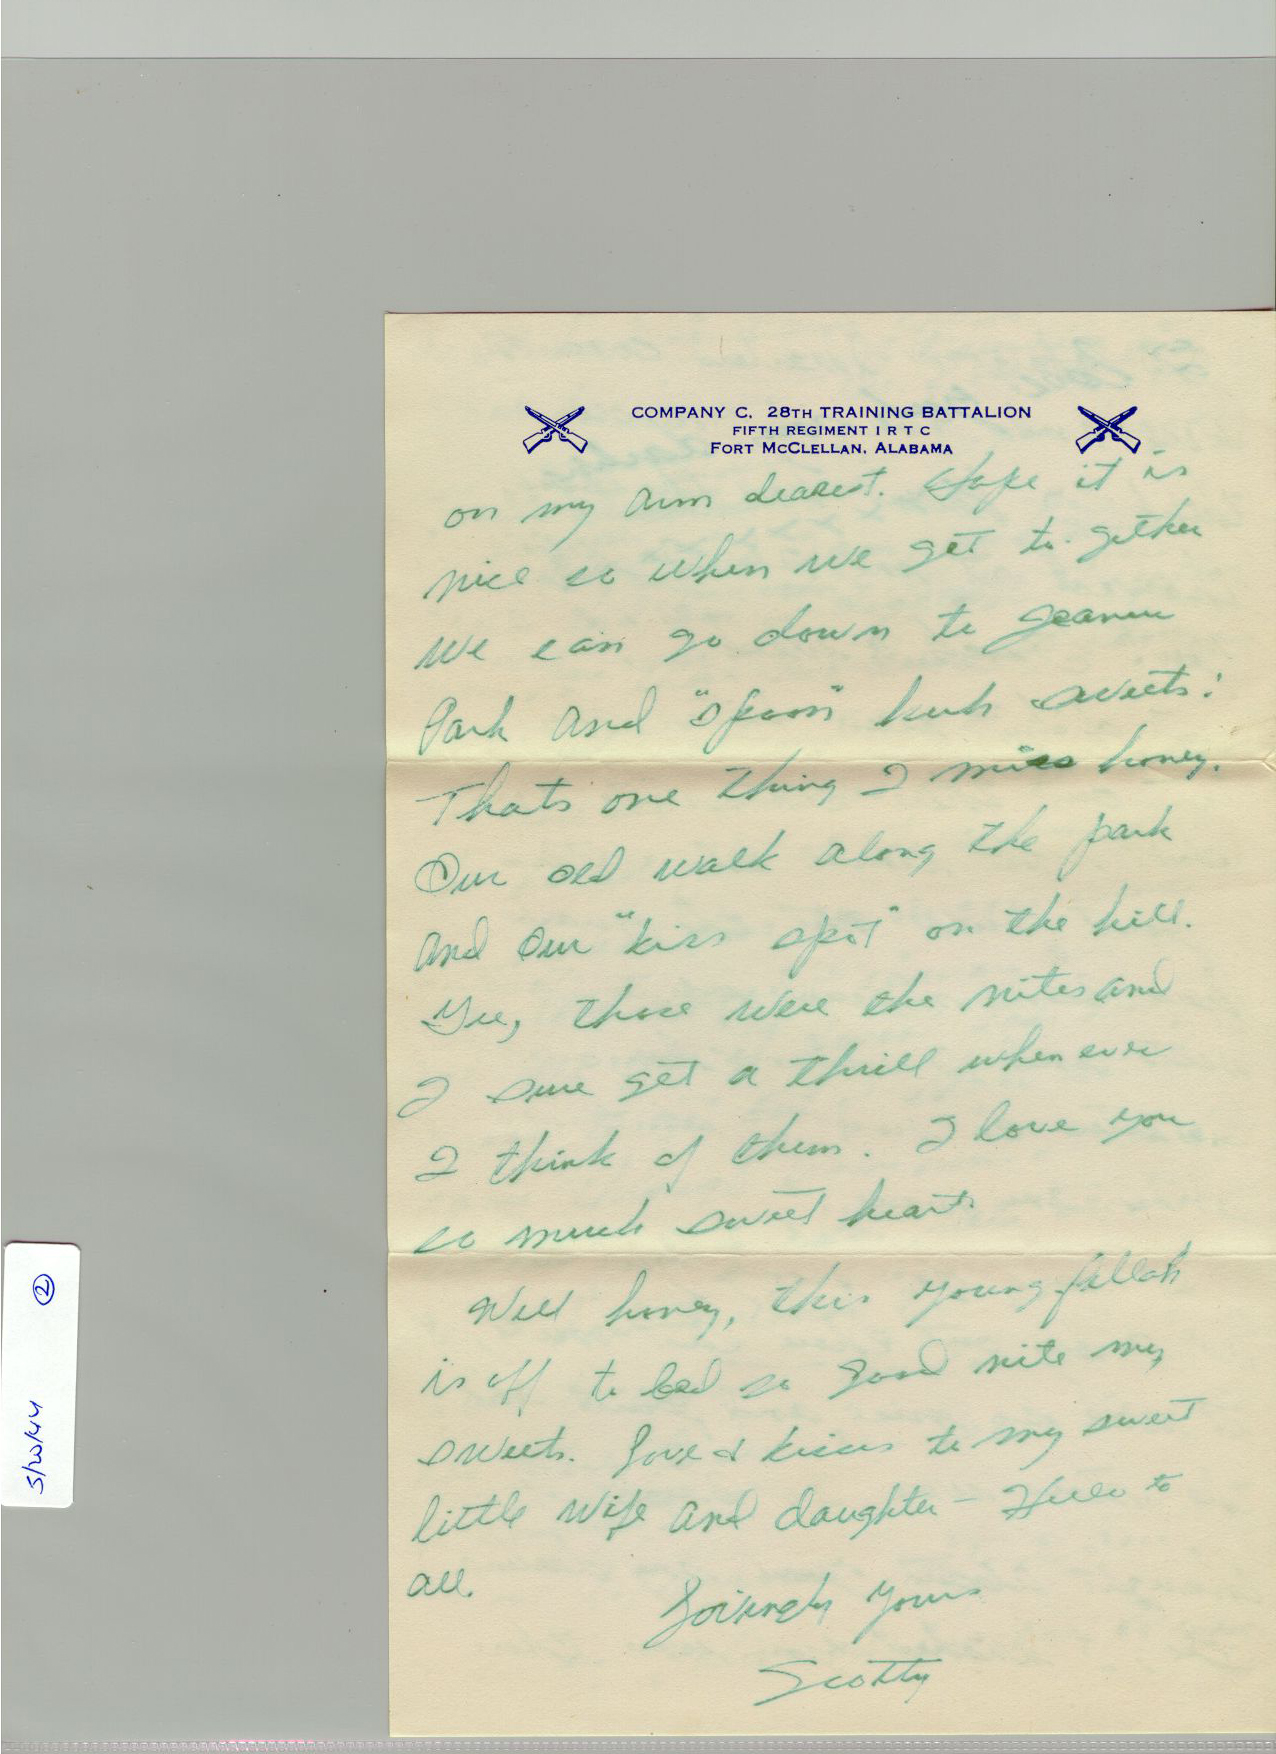 COMPANY C. 28TH TRAINING BATTALION
FIFTH REGIMENT I R T C
FORT MCCLELLAN, ALABAMA
on my arm dearest. Hope it is
nice so when we get to-gether
we can go down to
Park and "spoon" huh sweets!
Thats one thing I miss honey.
Our old walk along the park
and our "kiss spot" on the hill.
Gee, those were the nites and
I sure get a thrill when ever
I think of them. I love you
so much sweet heart.
Well honey, this young fellah
is off to bed so good nite my
sweets. Love & kisses to my sweet
little wife and daughter - Hello to
all.
Lovingly Yours
Scotty
5/20/44 ②